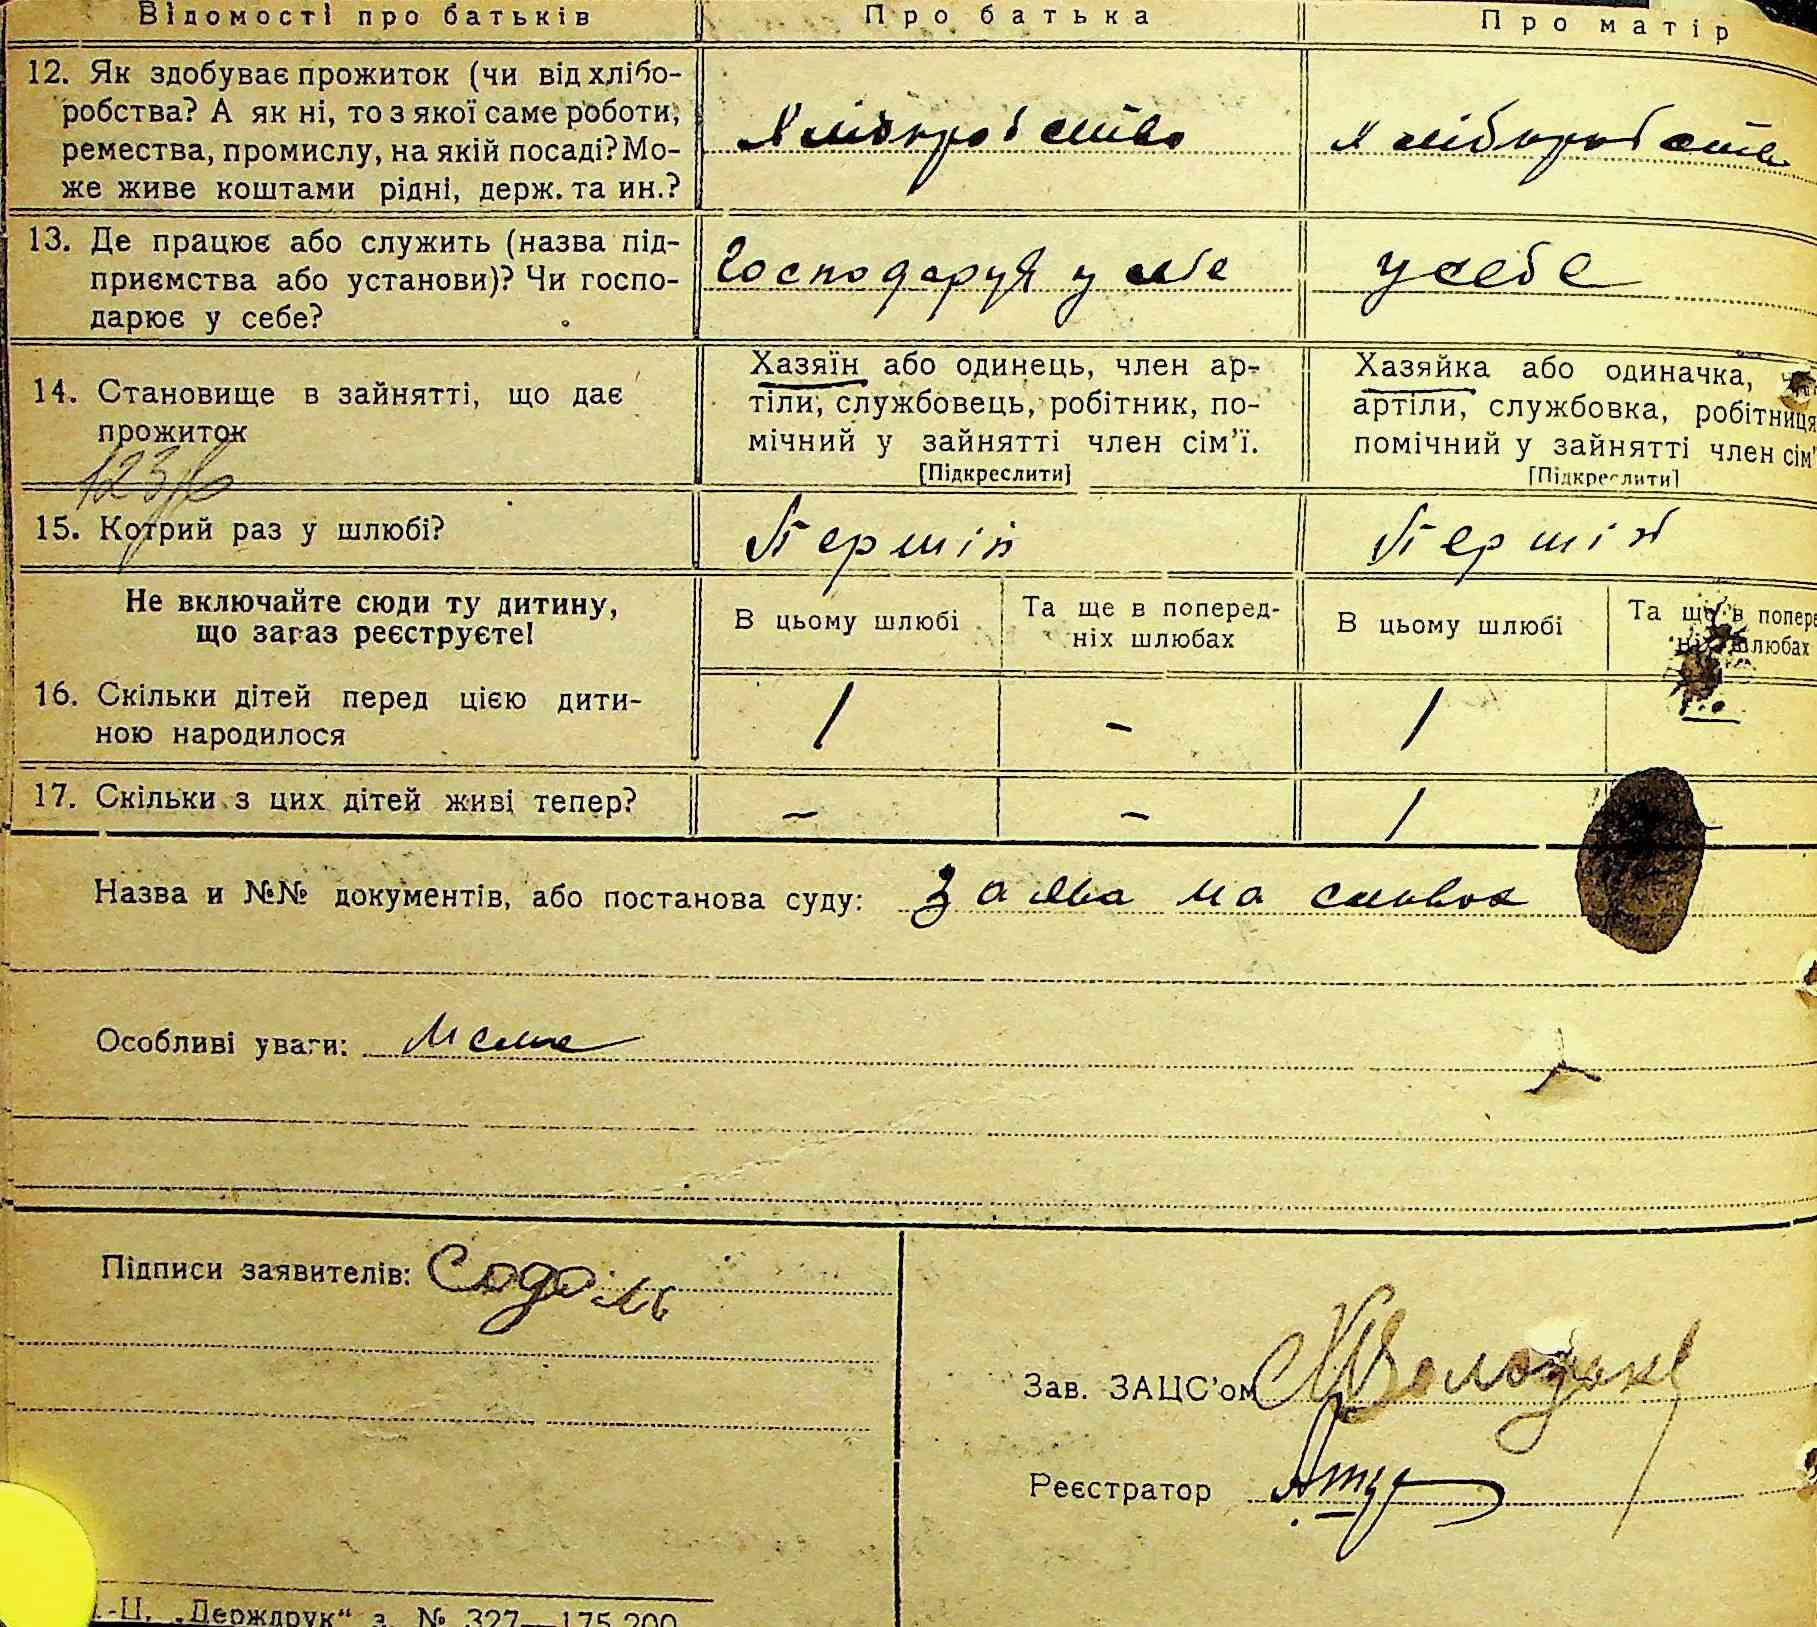 Відомості про батьків
Про батька
Про матір
12. Як здобуває прожиток (чи від хлібо-
робства? А як ні, то з якої саме роботи,
ремества, промислу, на якій посаді? Мо-
же живе коштами рідні, держ. та ин.?
Хліборобство
Хліборобство
13. Де працює або служить (назва під-
приємства або установи)? Чи госпо-
дарює у себе?
Господарує у себе
у себе
14. Становище в зайнятті, що дає
прожиток
Хазяїн або одинець, член ар-
тіли, службовець, робітник, по-
мічний у зайнятті член сім'ї.
[Підкреслити]
Хазяйка або одиначка,
артіли, службовка, робітниця
помічний у зайнятті член сім'
[Підкреслити]
15. Котрий раз у шлюбі?
Першій
Першій
Не включайте сюди ту дитину,
що зараз реєструєте!
В цьому шлюбі
Та ще в поперед-
ніх шлюбах
В цьому шлюбі
Та ще в попере
ніх шлюбах
16. Скільки дітей перед цією дити-
ною народилося
1
-
1
-
17. Скільки з цих дітей живі тепер?
-
-
1
Назва и №№ документів, або постанова суду: Заява на словах
Особливі уваги: Неме
Підписи заявителів:
Зав. ЗАЦС'ом
Реєстратор
„Держдрук“ з. № 327—175.200